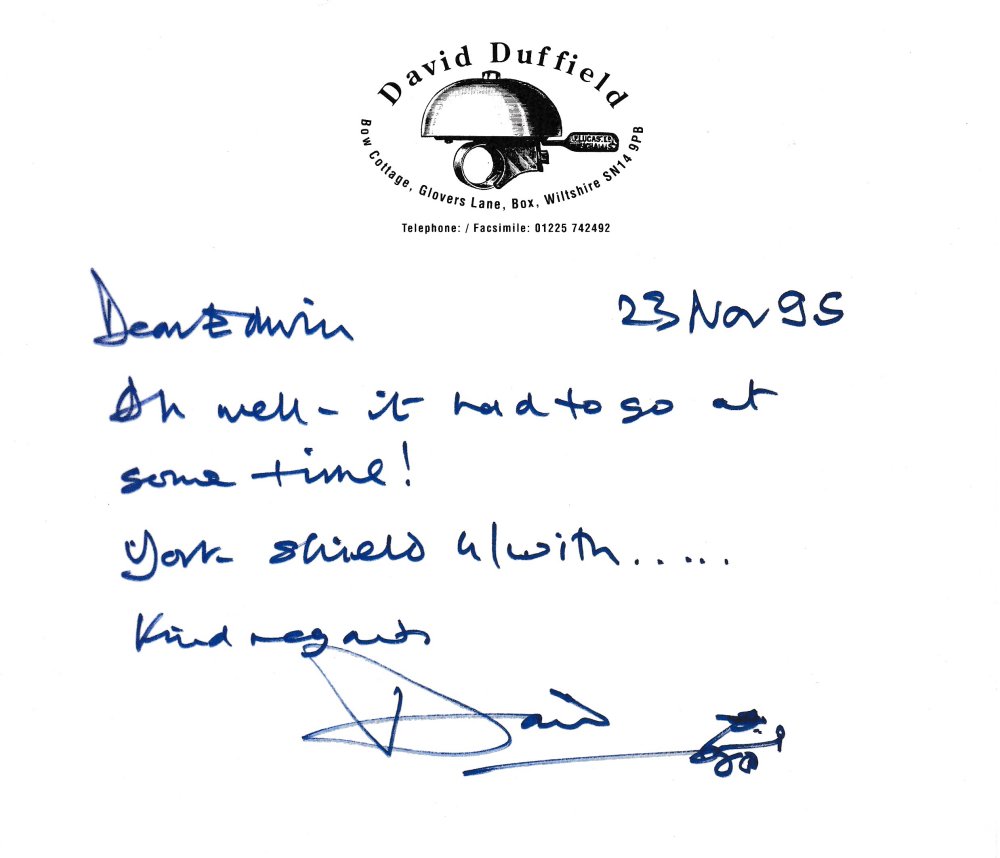 David Duffield
LUCAS LD
Bow Cottage, Glovers Lane, Box, Wiltshire SN14 9PB
Telephone: / Facsimile: 01225 742492
Dear Edwin 23 Nov 95
Oh well - it had to go at
some time!
York shield h/with.....
Kind regards
David